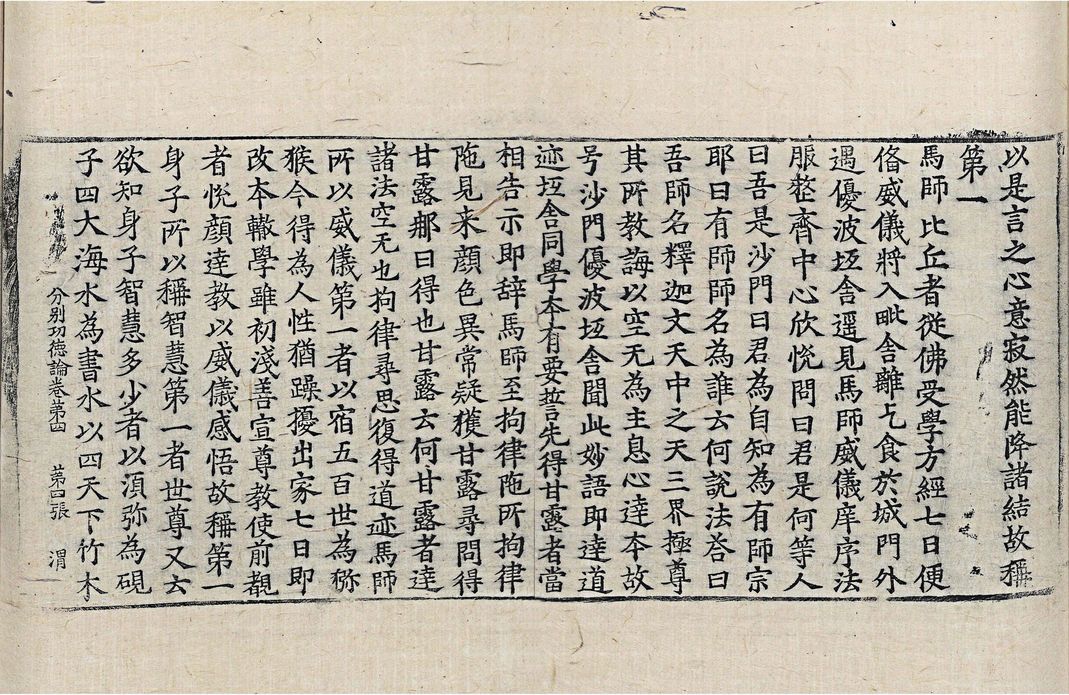 以是言之心意寂然能降諸結故稱
第一
馬師比丘者從佛受學方經七日便
俻威儀將入毗舍離乞食於城門外
遇優波坘舎遥見馬師威儀庠序法
服整齊中心欣悅問曰君是何等人
曰吾是沙門曰君為自知為有師宗
耶曰有師師名為誰云何說法荅曰
吾師名釋迦文天中之天三界極尊
其所教誨以空无為主息心達夲故
号沙門優波坘舎聞此妙語即逹道
迹坘舎同學夲有要誓言先得甘露者當
相告示即辞馬師至拘律陁所拘律
陁見来顔色異常疑獲甘露尋問得
甘露耶曰得也甘露云何甘露者逹
諸法空无也拘律尋思復得道迹馬師
所以威儀第一者以宿五百世為猕
猴今得為人性猶躁擾出家七日即
改本轍學雖初淺善宣尊教使前覩
者悅顔逹教以威儀感悟故稱第一
身子所以稱智慧第一者世尊又云
欲知身子智慧多少者以湏弥為硯
子四大海水為書水以四天下竹木
分別功德論卷苐四 苐四張 渭